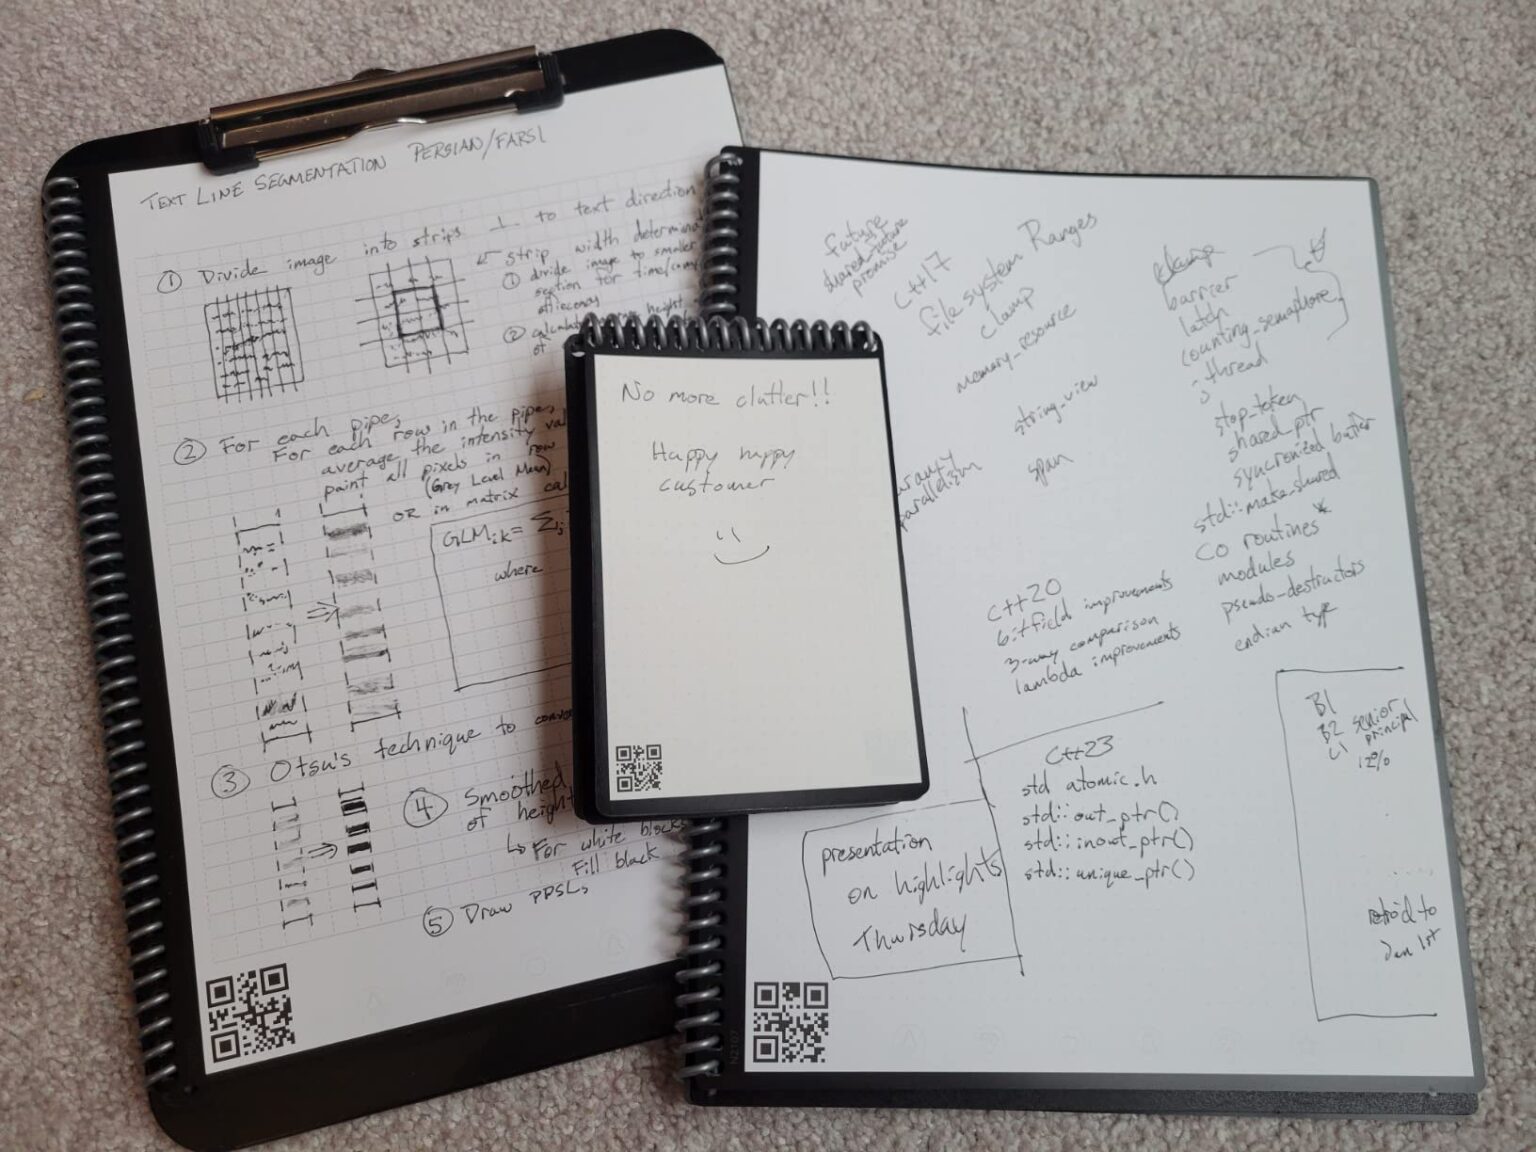 TEXT LINE SEGMENTATION PERSIAN/FARSI
① Divide image into strips ⊥ to text direction
← strip width
① divide image to smaller
section for time/
②
of
② For each pipe,
For each row in the pipe,
average the intensity
paint all pixels in row
(Grey Level Mean)
OR in matrix
GLMik= Σ
where
③ Otsu's technique to
④ Smoothed
of height
↳ For white blocks
Fill black
⑤ Draw PPSL,
No more clutter!!
Happy happy
customer
future
shared_future
promise
C++17
filesystem Ranges
clamp
memory_resource
string_view
parallelism
span
clamp
barrier
latch
counting_semaphore
jthread
stop-token
shared_ptr
std::make_shared
CO routines*
modules
pseudo-destructors
endian type
C++20
bitfield improvements
3-way comparison
lambda improvements
C++23
std atomic.h
std::out_ptr()
std::inout_ptr()
std::unique_ptr()
presentation
on highlights
Thursday
B1
B2 senior
C1 principal
12%
retro'd to
Jan 1st
N2107